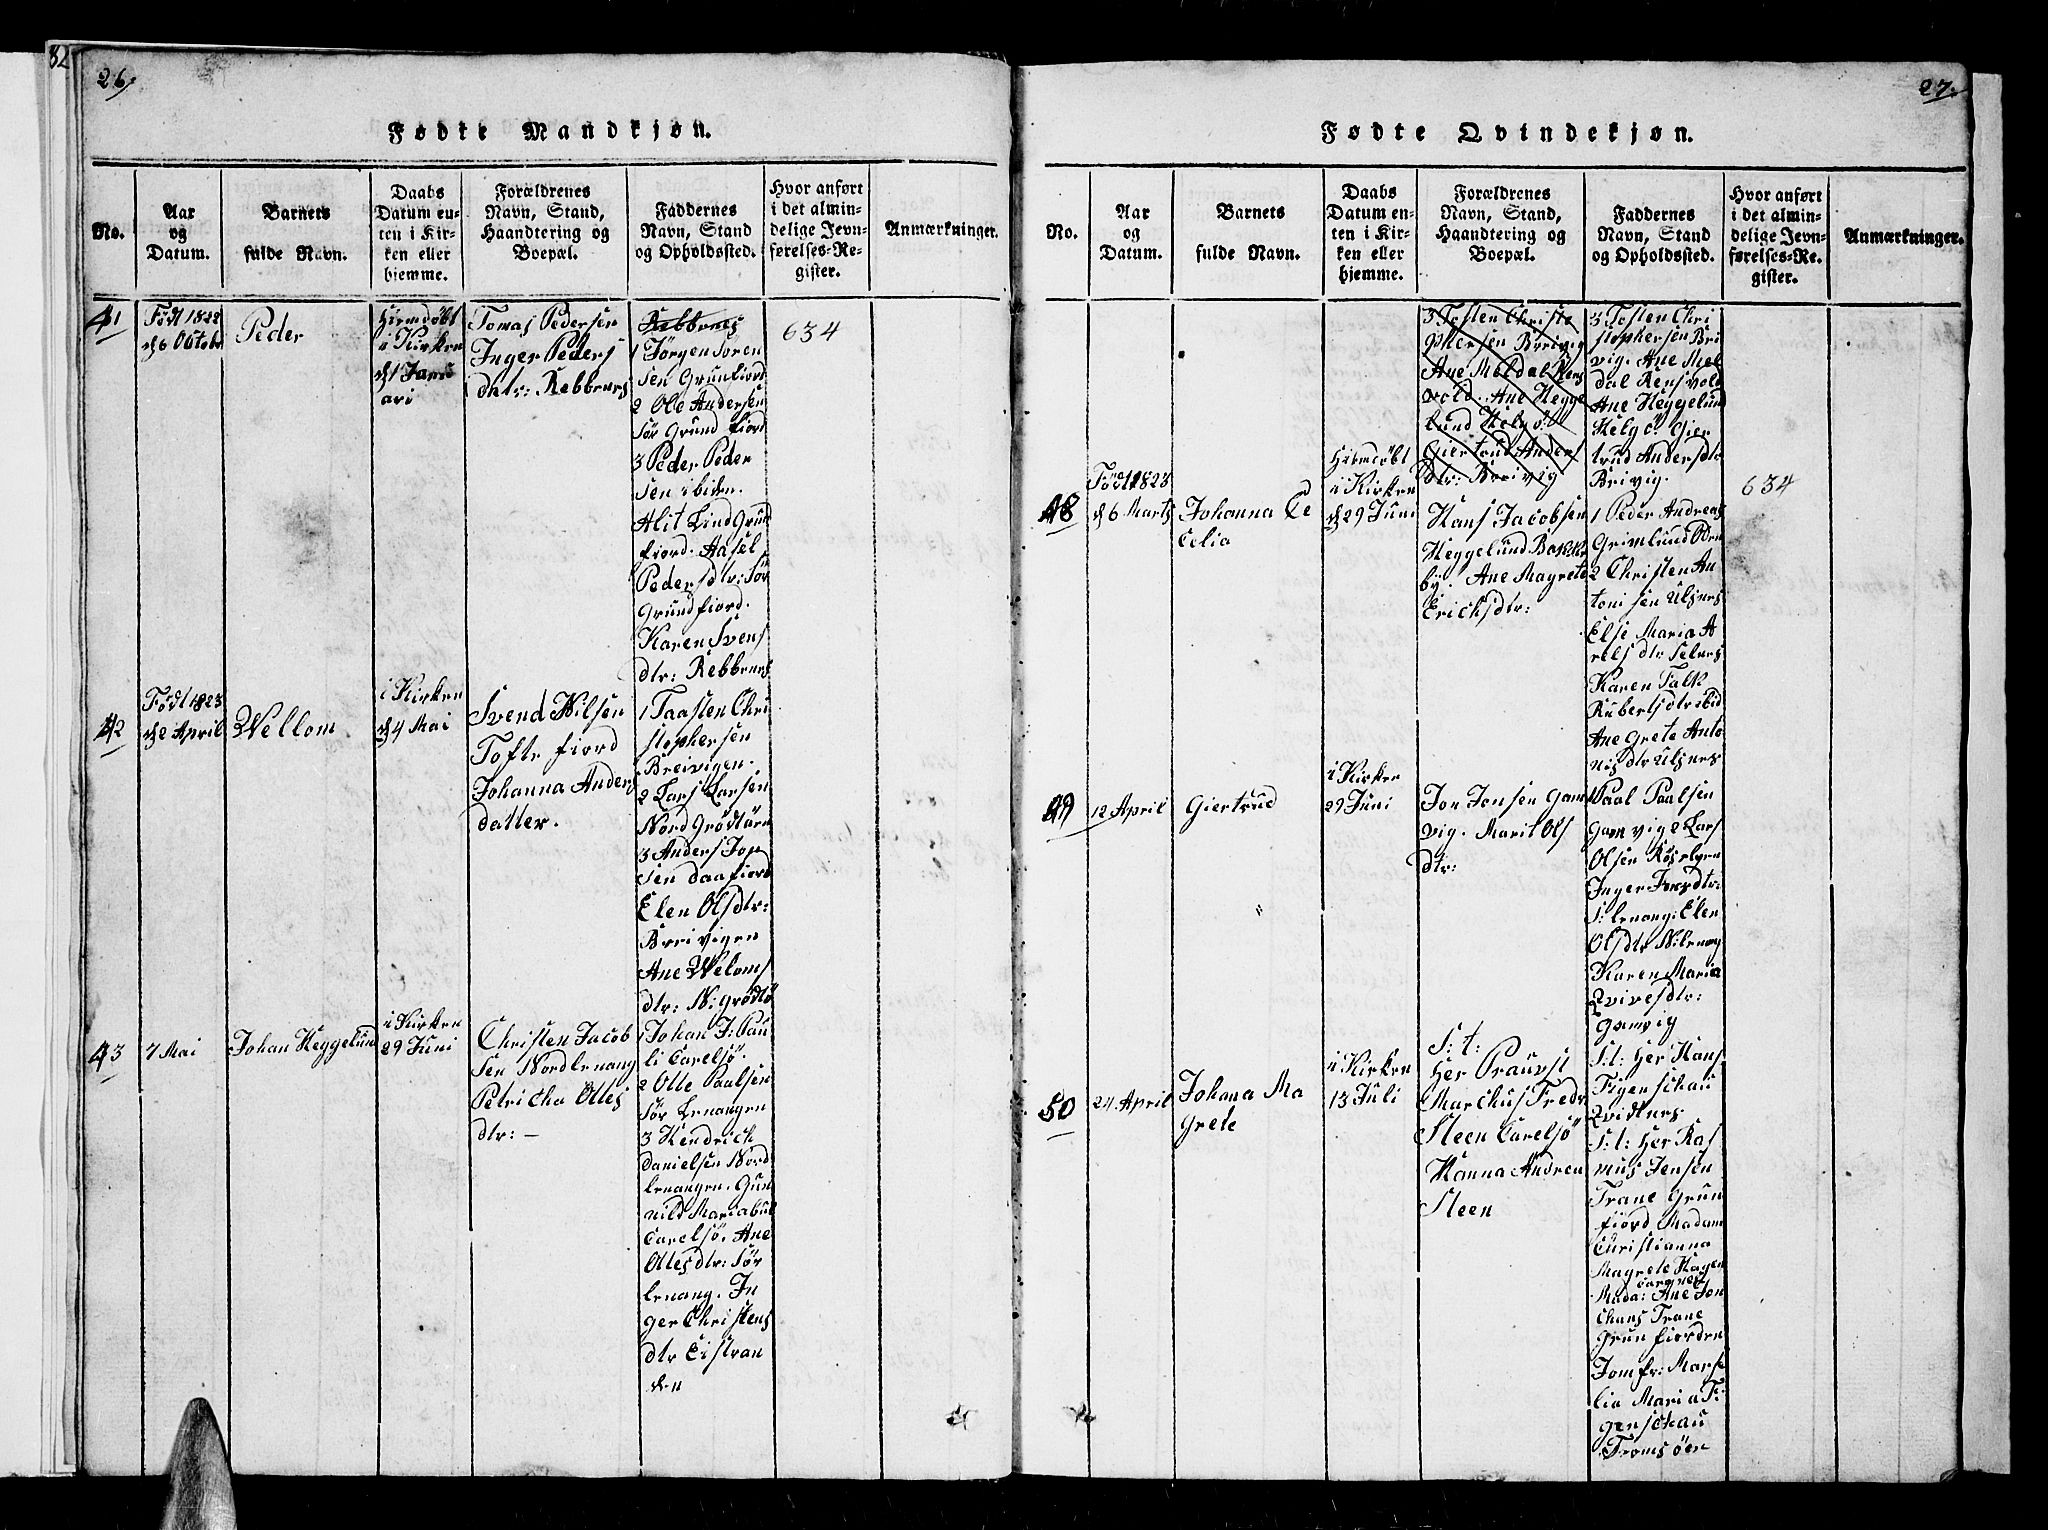 26.
Fødte Mandkjøn.
No.
Aar
og
Datum.
Barnets
fulde Navn.
Daabs
Datum en-
ten i Kir-
ken eller
hjemme.
Forældrenes
Navn, Stand,
Haandtering og
Boepæl.
Faddernes
Navn, Stand
og Opholdssted.
Hvor anført
i det almin-
delige Jevn-
førelses-Re-
gister.
Anmærkninger.
41
Födt 1822
d 6 Octobr
Peder
Hiemdöbt
i Kirken
d 1 Janu
ari
Tomas Pedersen
Inger Peders
datr: Rebbenes
Rebbenes
1 Jörgen Sören
sen Grunfiord
2 Ole Andersen
Sör Grundfiord
3 Peder Peder
sen ibiden.
Alit Lind Grun
fiord. Aasel
Pedersdtr: Sör
Grundfiord.
Karen Svens
dtr: Rebbenes
634
42
Födt 1823
d 2 April
Wellom
i Kirken
d 4 Mai
Svend Nilsen
Tofte fiord
Johanna Anders
datter.
1 Taasten Chri
stophersen
Breivigen.
2 Lars Larsen
Nord Grödtöen
3 Anders Jon
sen daafiord
Elen Olsdtr:
Breivigen
Ane Weloms
dtr: N: grödtö
43
7 Mai
Johan Heggelund
i Kirken
29 Juni
Christen Jacob
sen Nordlenang
Petricha Ottes
dtr: –
1 Johan J: Pau
li Carelsö.
2 Otte Paulsen
Sör Lenangen
3 Hendrich
Danielsen Nord
lenangen. Gun
nild Maria bul
Carelsö. Ane
Ottesdtr: Sör
lenang. In
ger Christens
dtr Eistran
den
27.
Fødte Qvindekjøn.
No.
Aar
og
Datum.
Barnets
fulde Navn.
Daabs
Datum en-
ten i Kir-
ken eller
hjemme.
Forældrenes
Navn, Stand,
Haandtering og
Boepæl.
Faddernes
Navn, Stand
og Opholdssted.
Hvor anført
i det almin-
delige Jevn-
førelses-Re-
gister.
Anmærkninger.
3 Tosten Christo
phersen Breivig
Ane Meldal Rens
vold. Ane Hegge
lund Helgö:
Giertrud Anders
dtr: Breivig
3 Tosten Chri
stophersen Bri
vig. Ane Mel
dal Rensvold
Ane Heggelund
Helgö. Gier
trud Andersdtr
Brivig.
48
Födt 1823
d 6 Marts
Johanna Ce
celia
Hiemdöbt
i Kirken
d 29 Juni
Hans Jacobsen
Heggelund Bakke
by. Ane Magrete
Erichsdtr:
1 Peder Andreas
Grimlund
2 Christen An
tonisen Ulsnes
Else Maria A
relsdtr
Karen Falk
Rubertsdtr ibid
Ane Grete Anto
nisdtr Ulsnes
634
49
12 April
Giertrud
i Kirken
29 Juni
Jon Jonsen Gam
vig. Marit Ols
dtr:
1 Paal Paalsen
Gamvig 2 Lars
Olsen
Inger
S: lenang: Elen
Olsdtr N: lenang
Karen Maria
Qvivesdtr:
Gamvig
50
24 April
Johana Ma
grete
i Kirken
13 Juli
S: t:
Her Prauvst
Marchus Fredr
Steen Carelsö
Hanna Andrea
Steen
S: t: Her Hans
Figenschau
Qvidtnes
S: t: Her Ras
mus Jensen
Trane Grun
fiord Madam
Christianna
Magrete Hagen
Carqnes
Mada: Ane Jon
chans Trane
Grunfiorden
Jomfr: Marse
lia Maria Fi
genschau
Tromsöen